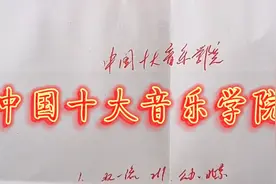 中国十大音乐学院
中国十大音乐学院
1. 双一流